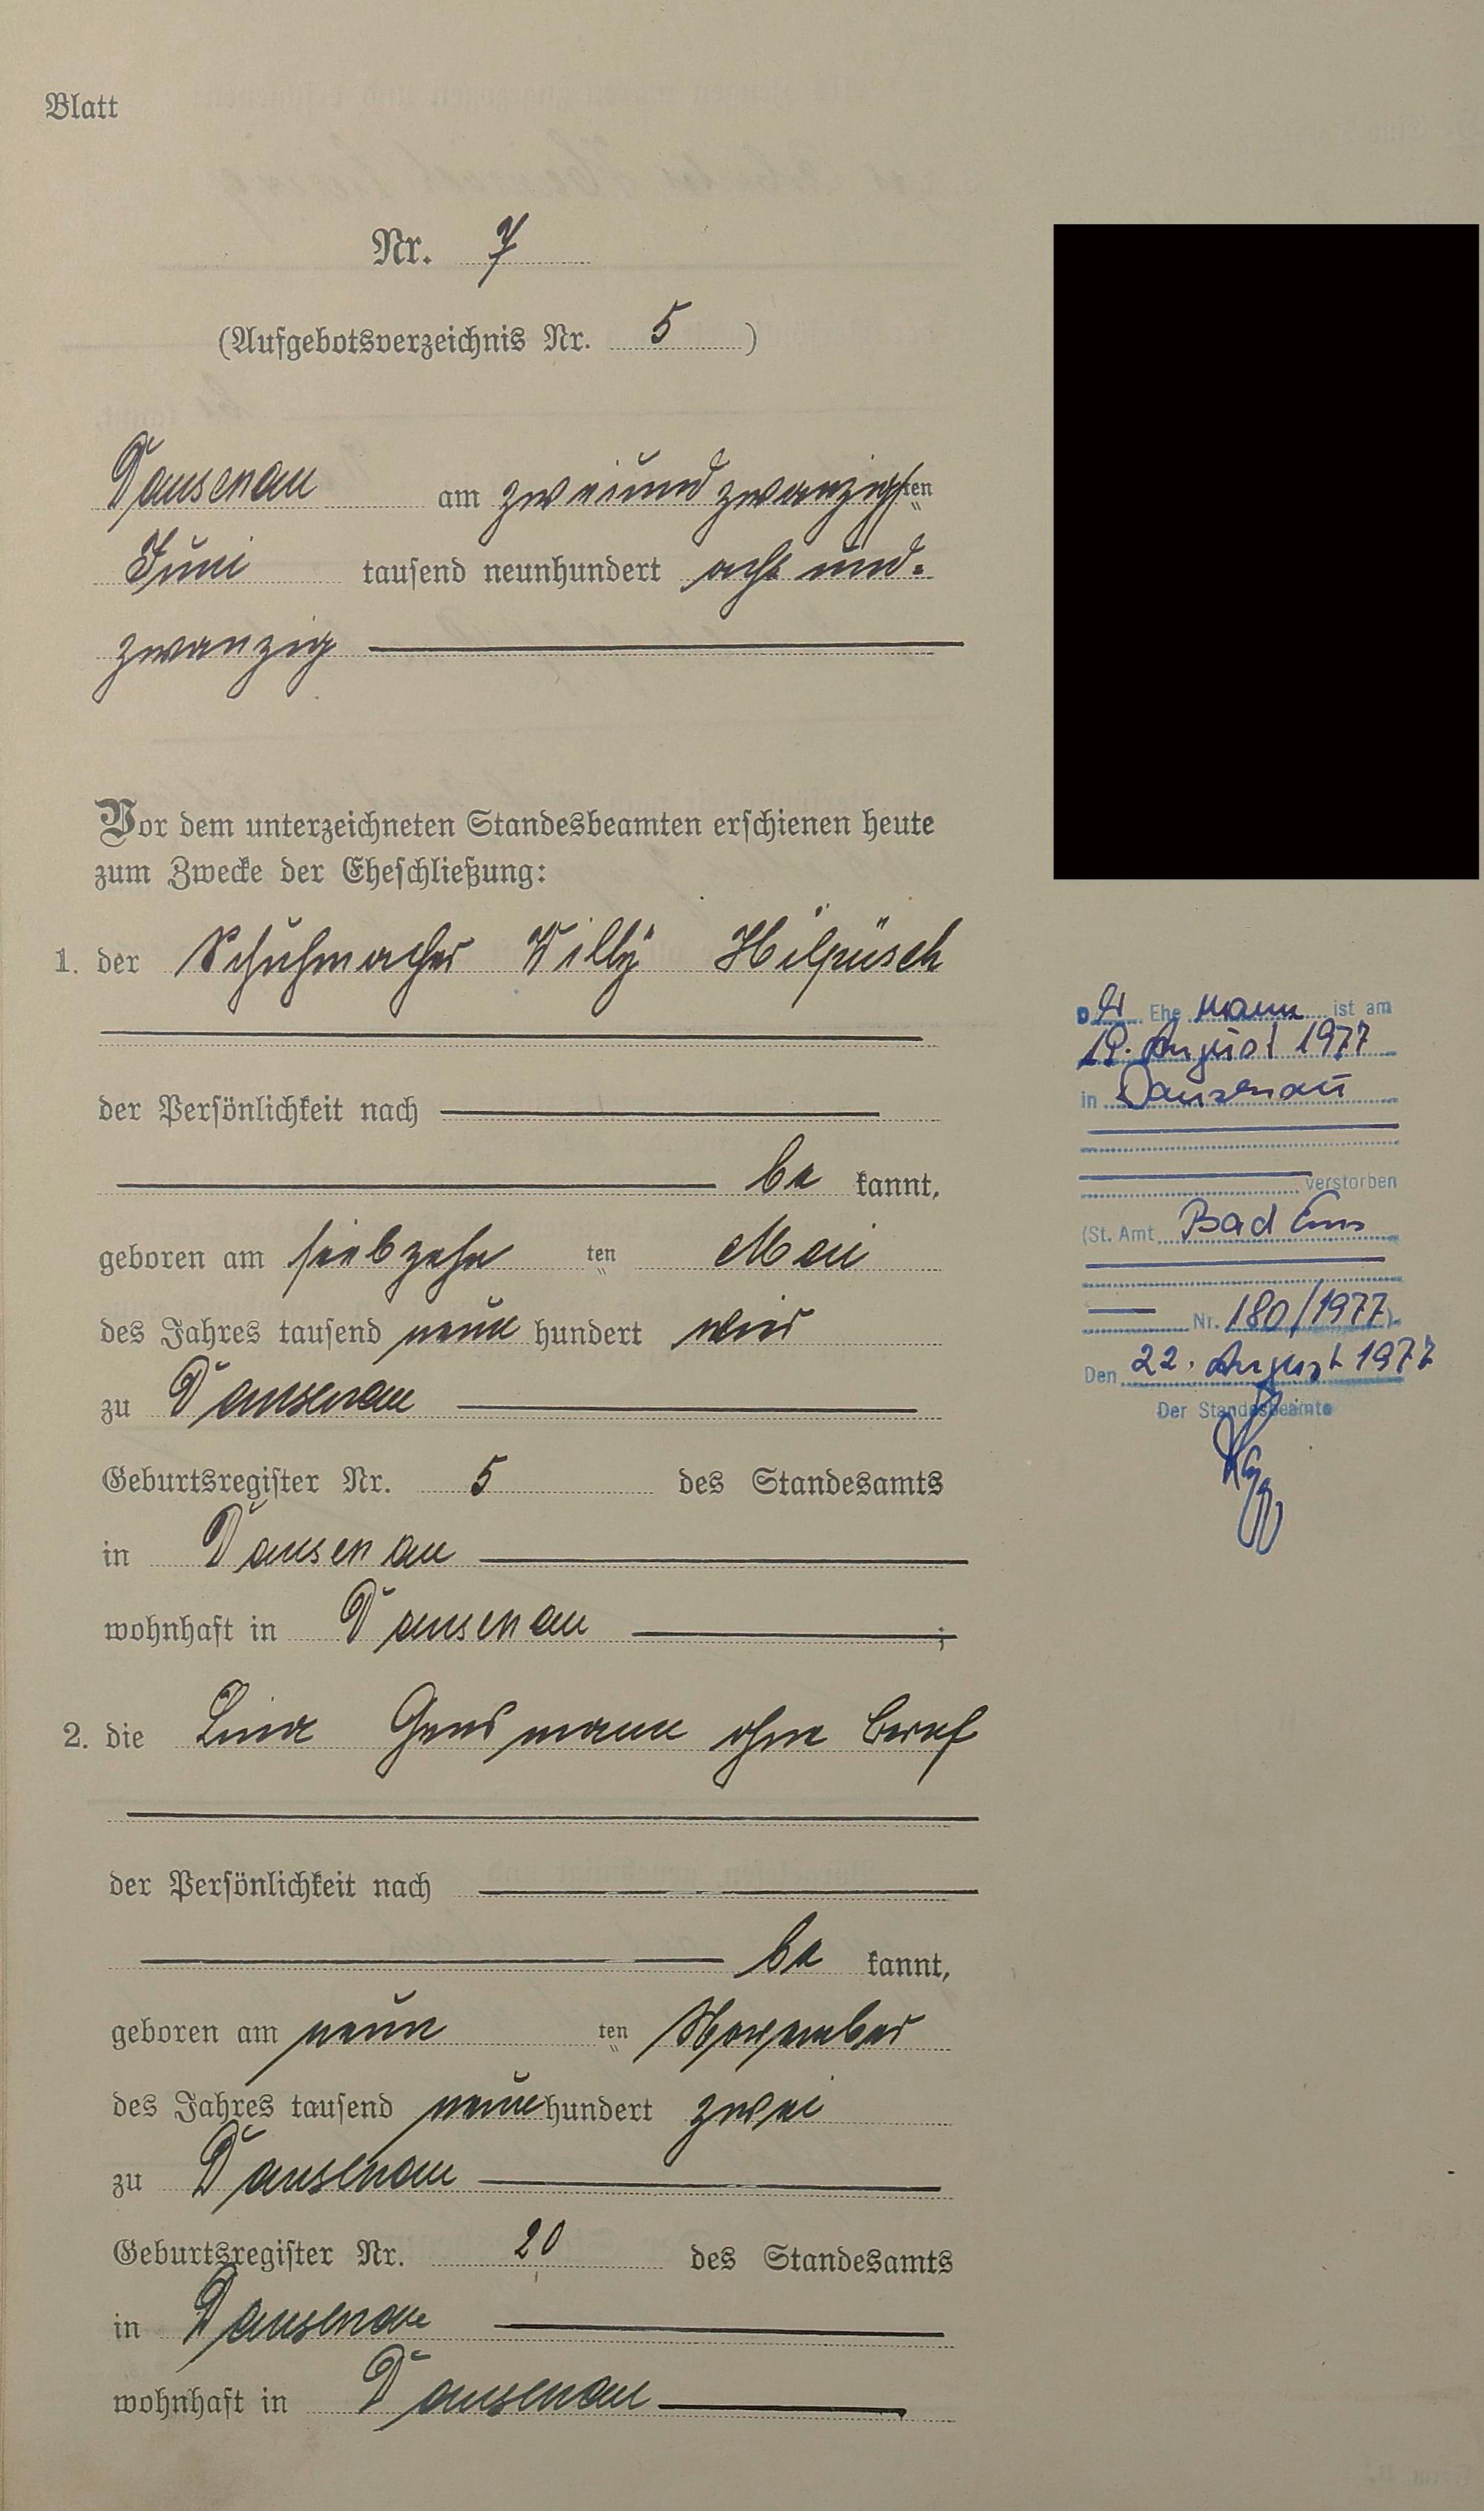 Blatt
Nr. 7
(Aufgebotsverzeichnis Nr. 5)
Dausenau am zweiundzwanzigsten
Juni tausend neunhundert acht und
zwanzig
Vor dem unterzeichneten Standesbeamten erschienen heute
zum Zwecke der Eheschließung:
1. der Schuhmacher Willy Hilpüsch
der Persönlichkeit nach
be kannt,
geboren am siebzehn ten Mai
des Jahres tausend neun hundert vier
zu Dausenau
Geburtsregister Nr. 5 des Standesamts
in Dausenau
wohnhaft in Dausenau ;
2. die Lina ohne Beruf
der Persönlichkeit nach
be kannt,
geboren am neun ten November
des Jahres tausend neun hundert zwei
zu Dausenau
Geburtsregister Nr. 20 des Standesamts
in Dausenau
wohnhaft in Dausenau
Der Ehe mann ist am
19. August 1977
in Dausenau
verstorben
(St. Amt Bad Ems
Nr. 180/1977).
Den 22. August 1977
Der Standesbeamte